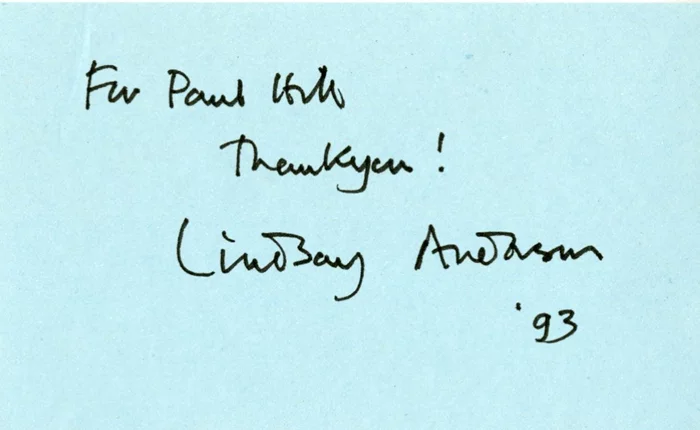 For Paul Hill
Thankyou!
Lindsay Anderson
'93